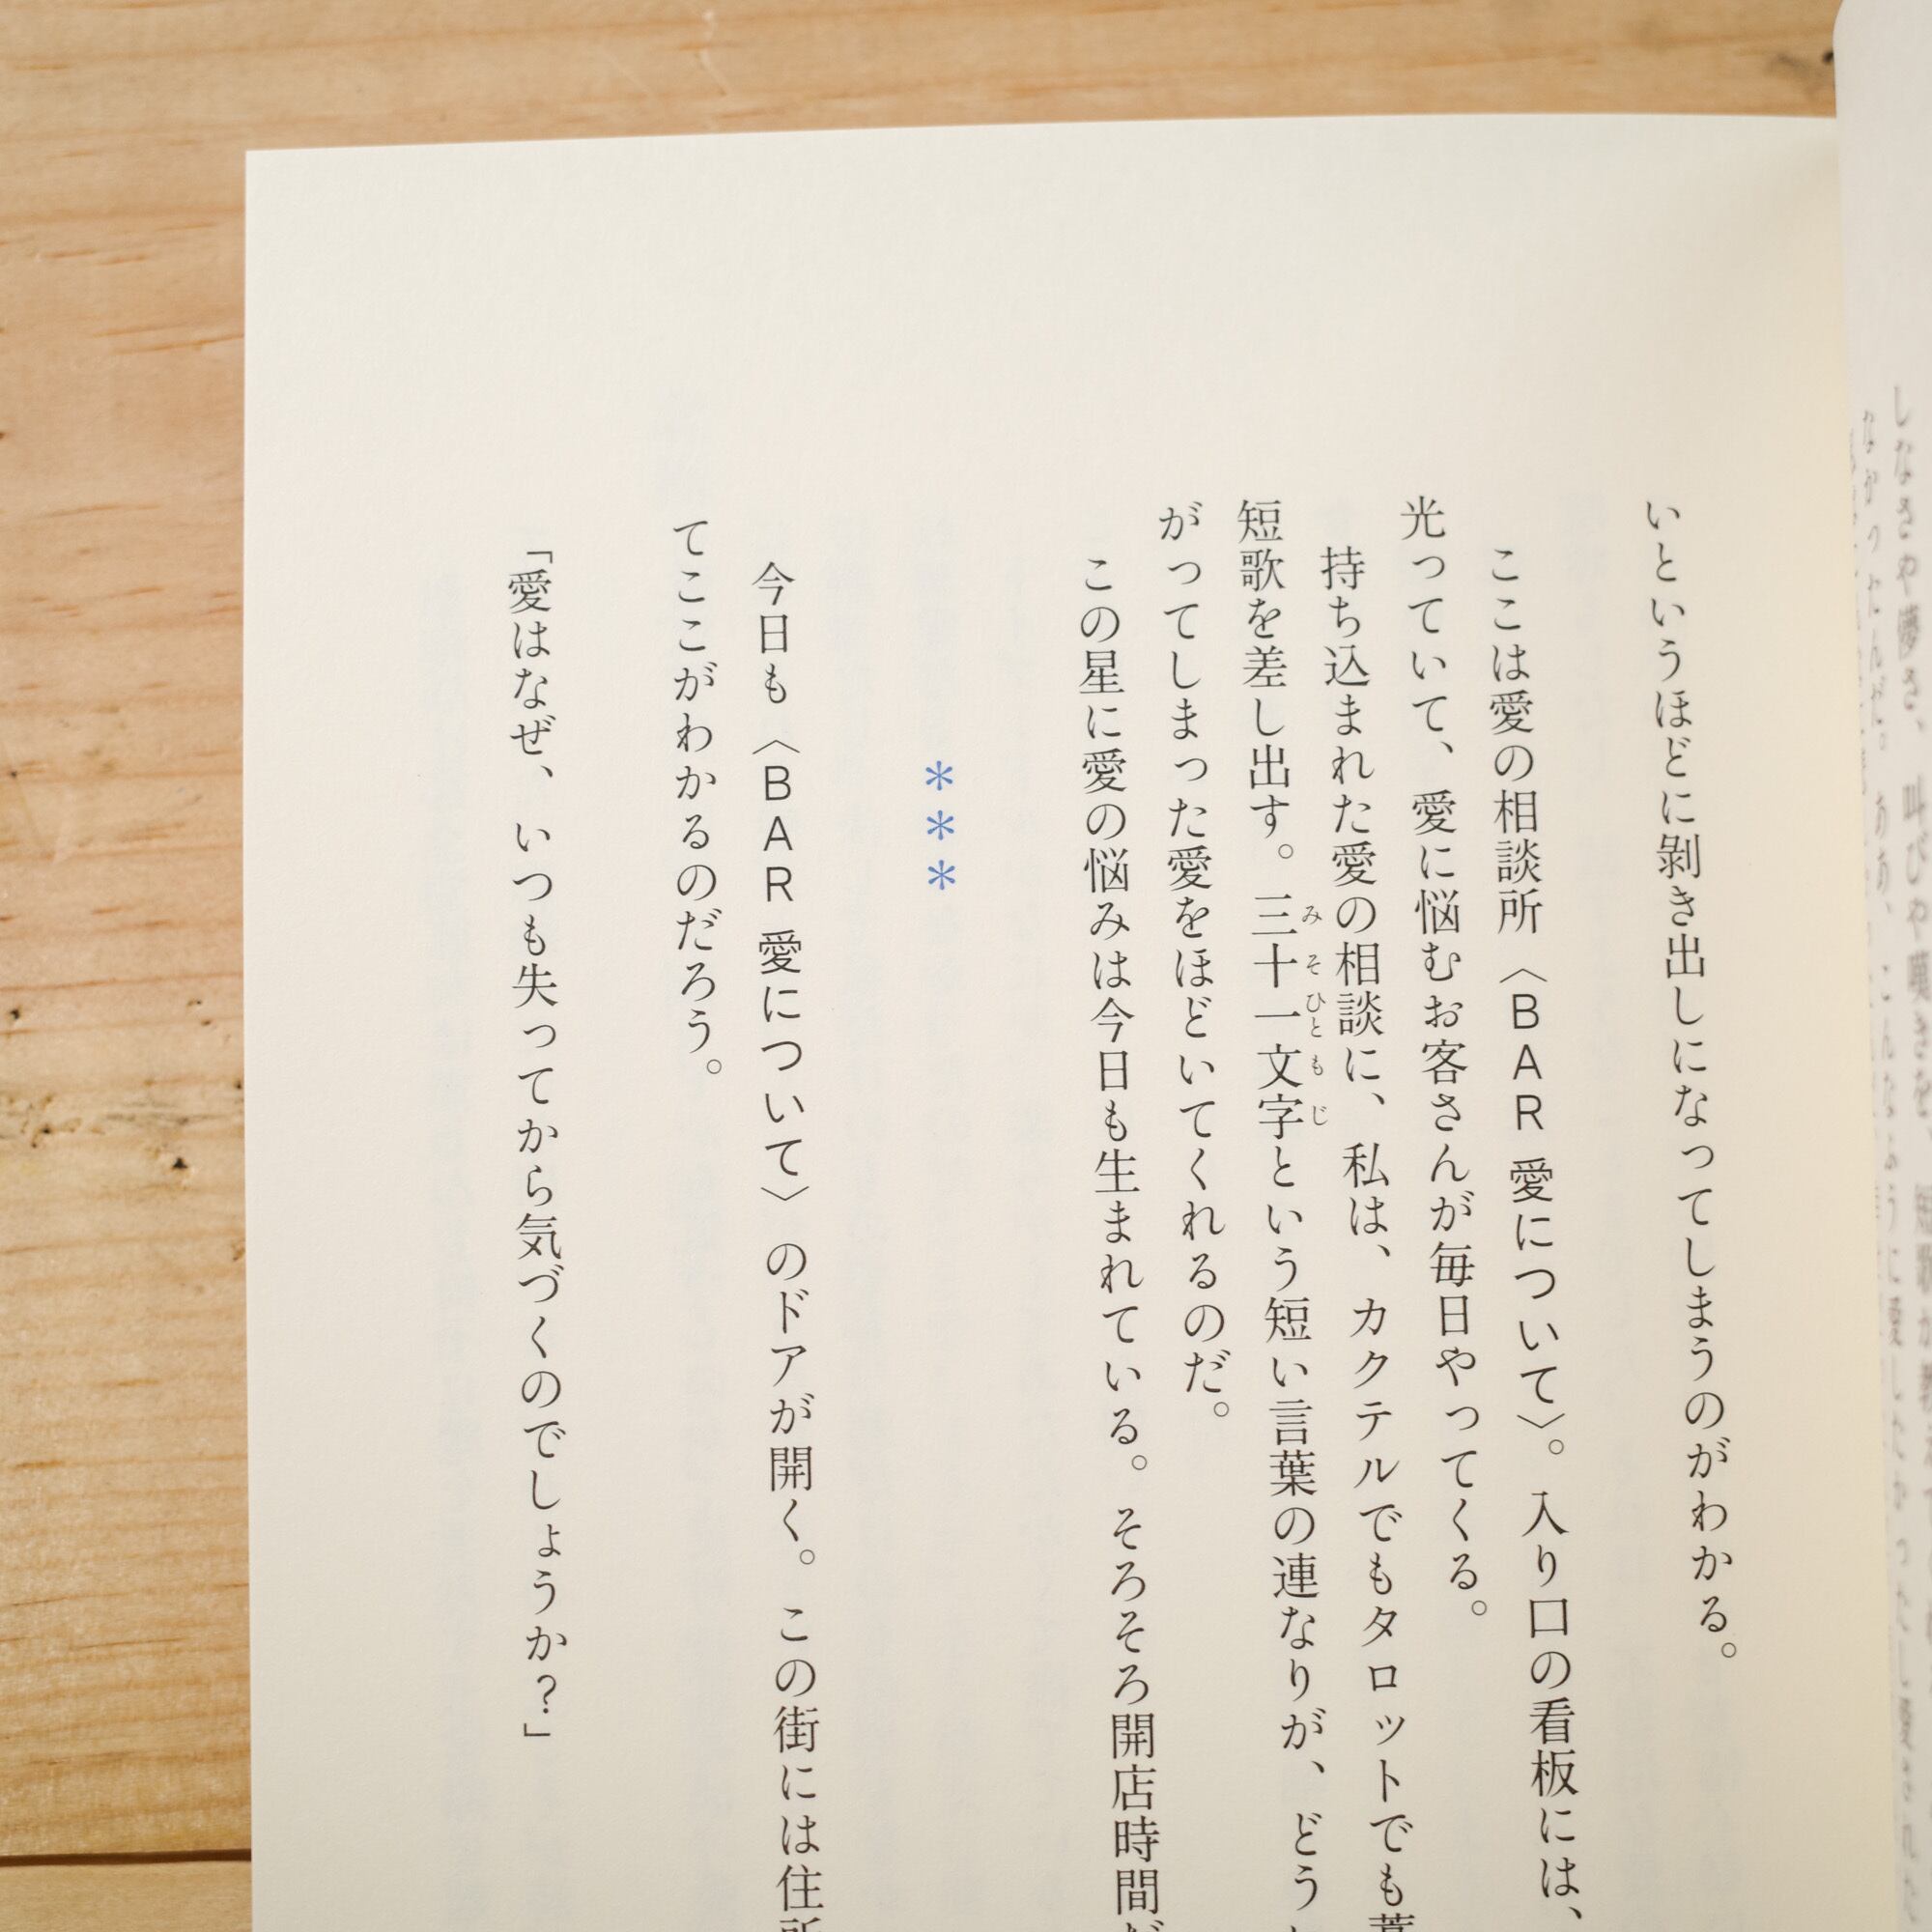 いというほどに剝き出しになってしまうのがわかる。
ここは愛の相談所〈BAR 愛について〉。入り口の看板には、
光っていて、愛に悩むお客さんが毎日やってくる。
持ち込まれた愛の相談に、私は、カクテルでもタロットでも
短歌を差し出す。三十一文字という短い言葉の連なりが、どう
みそひともじ
がってしまった愛をほどいてくれるのだ。
この星に愛の悩みは今日も生まれている。そろそろ開店時間だ
***
今日も〈BAR 愛について〉のドアが開く。この街には住所
てここがわかるのだろう。
「愛はなぜ、いつも失ってから気づくのでしょうか？」